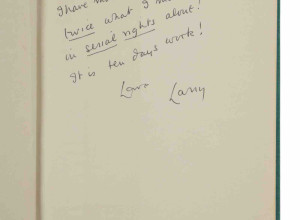 I have
twice what I
in serial rights about!
It is ten days work!
Love
Larry